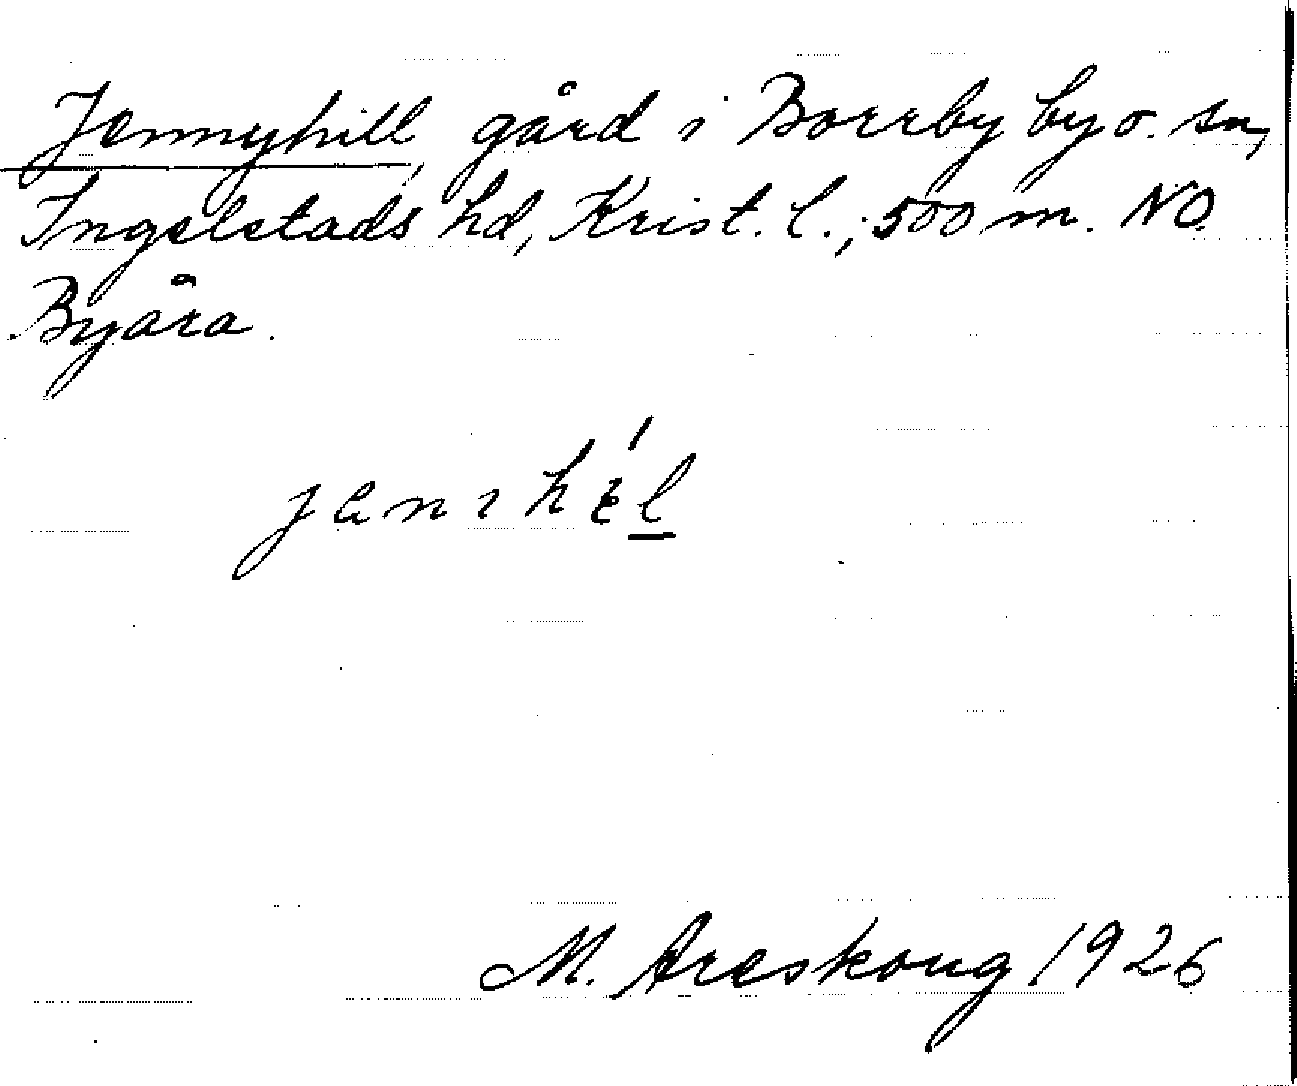 Jennyhill, gård i Borrby by o. sn,
Ingelstads hd, Krist. l.; 500 m. NO.
Byåra.
M. Areskoug 1926